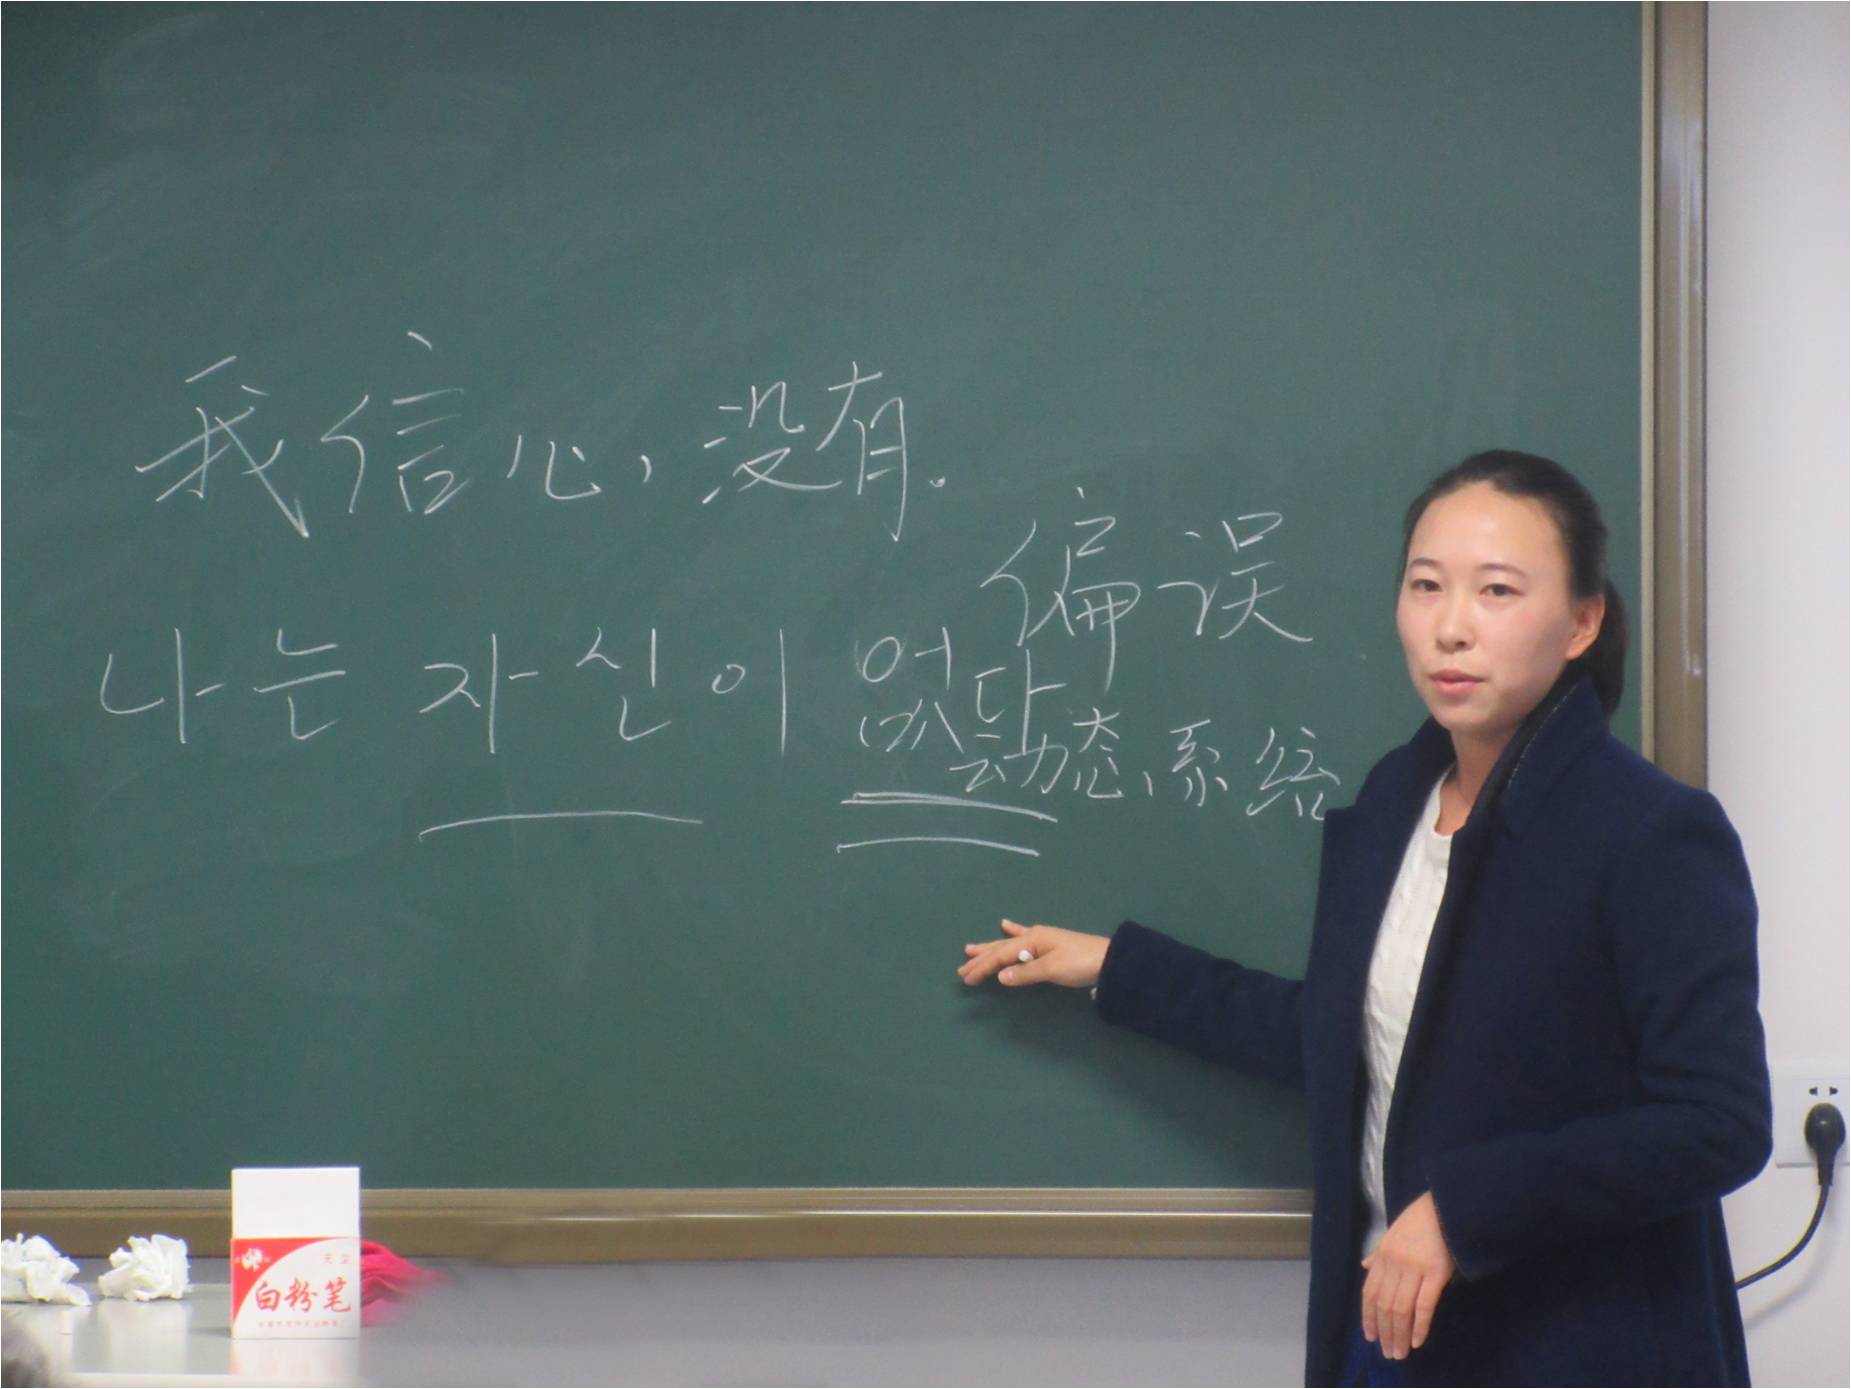 我信心，没有.
偏误
나는 자신이 없다
动态、系统
无尘
白粉笔